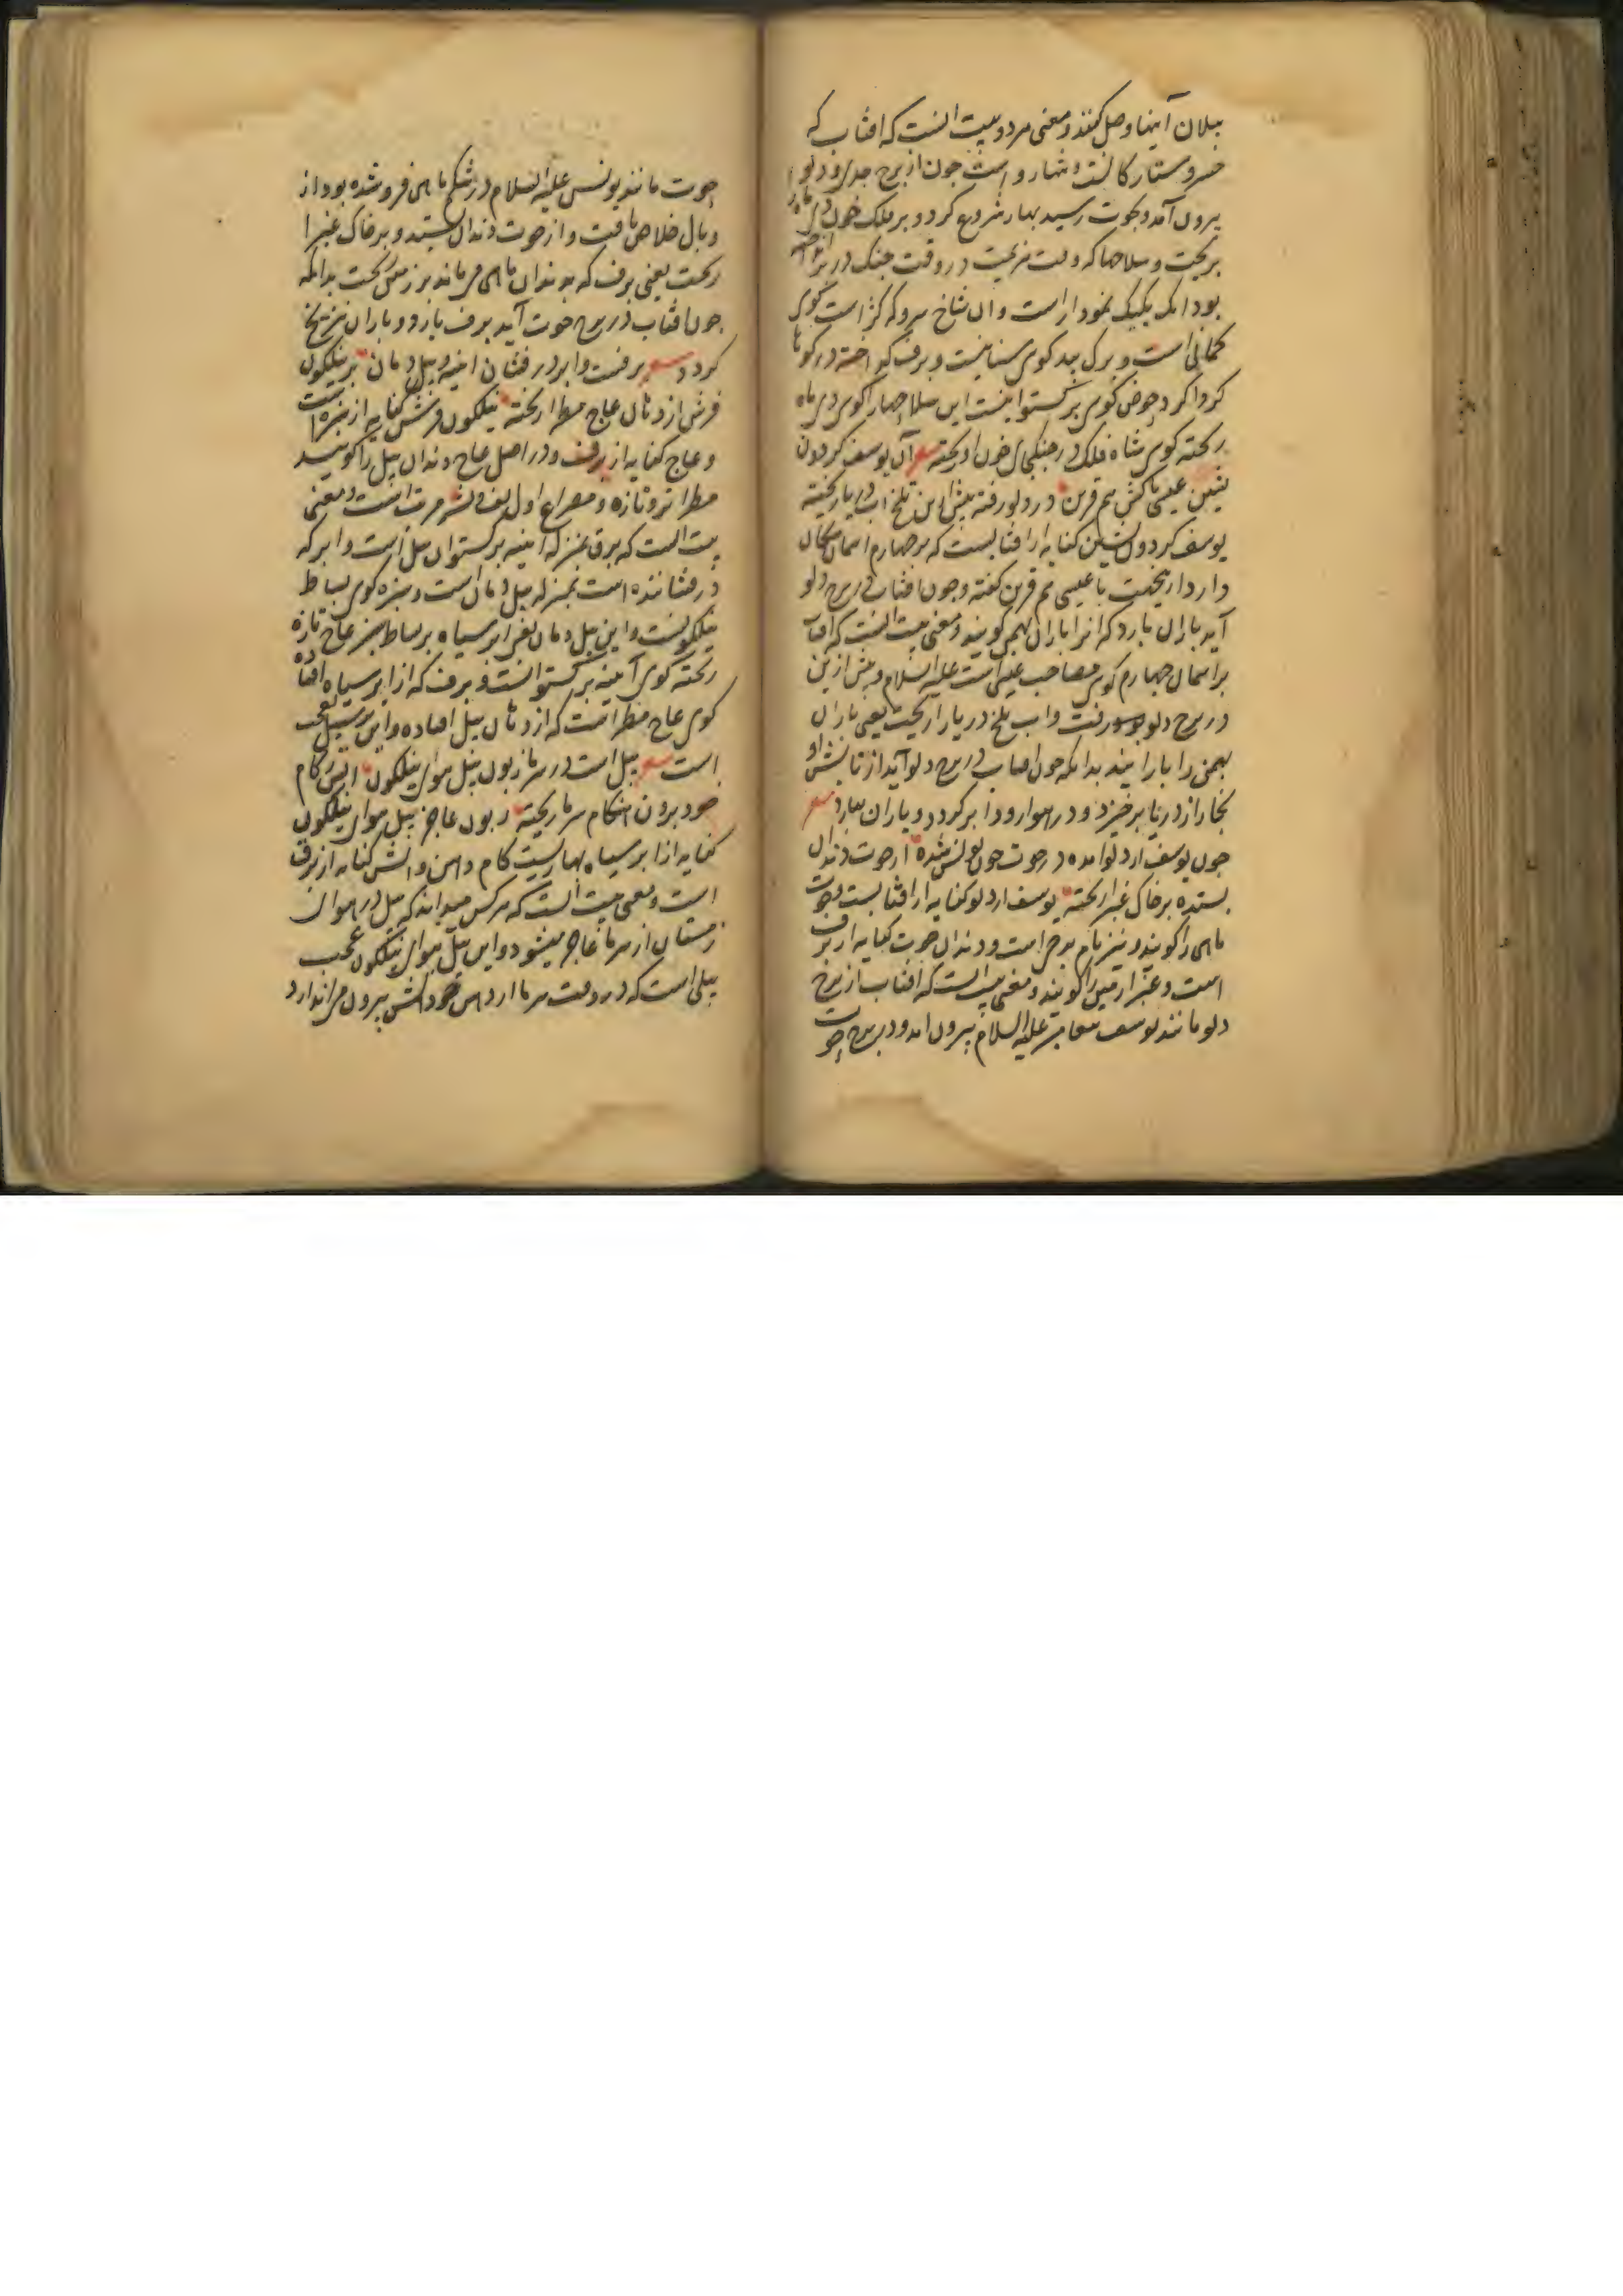 بیلان آینها وصل کنند و معنی هر دو بیت آنست که افتاب که
خسرو ستارکانست و شهار و است چون از برج جدی و دلو
بیرون آمد و بحوت رسید بهار شروع کرد و بر فلک خون دی ماه را
بریخت و سلاحها که وقت در وقت جنک در بر
بود انک یکیک نمودار است و ان شاخ سرو که کژ است کوی
کمانی است و برک بید کوی سنانیست و برف که اخته در کوتا
کرداکرد حوض کوی بر کستوانیست این سلاحها را کوی دی ماه
ریخته کوی شاه فلک در جنکجای خون او ریخته شعر آن یوسف کردون
نشین عیسی پاکش هم قرین در دلو رفته پیش ازین تلخ اب دریا ریخته
یوسف کردون نشین کنایه از افتابست که بر چهارم اسمان مکان
دارد ازینجهت با عیسی هم قرین کفته و چون افتاب در برج دلو
آید باران بارد که انرا باران بهمن کویند و معنی بیت انست که افتاب
بر اسمان چهارم کوی مصاحب عیسی است علیه السلام و پیش ازین
در برج دلو رفت و اب تلخ دریا را ریخت یعنی باران
بهمن را بارانید بدانکه چون افتاب در برج دلو آید از تابش او
بخار از دریا برخیزد و در هوا رود و ابر کردد و باران ببارد شعر
چون یوسف از دلو آمده در حوت چون یونس شده از حوت دندان
بستده بر خاک غبرا ریخته یوسف از دلو کنایه از افتابست و حوت
ماهی را کویند و نیز نام برجی است و دندان حوت کنایه از برف
است و غبرا زمین را کویند و معنی بیت انست که افتاب از برج
دلو مانند یوسف پیغامبر علیه السلام بیرون امد و در برج حوت
حوت مانند یونس علیه السلام در شکم ماهی فرو شده بود از
وبال خلاص یافت و از حوت دندان ستید و بر خاک غبرا
ریخت یعنی برف که بدندان ماهی میماند بر زمین ریخت بدانکه
چون افتاب در برج حوت آید برف بارد و باران نیز یخ
کردد شعر برقست و ابر در رفشان اینه و پیل دمان بر نیلکون
فرش از دهان عاج مطرا ریخته نیلکون فرش کنایه از سبزه است
و عاج کنایه از برف و در اصل عاج دندان پیل را کویند
مطرا تر و تازه و مصراع اول لف و نشر مرتب است و معنی
بیت انست که برق بمنزله آینه بر کستوان پیل است و ابر که
درفشاننده است بمنزله پیل دمان است و سبزه کوی بساط
نیلکونست و این پیل دمان یعنی ابر سیاه بر بساط سبز عاج تازه
ریخته کوی آینه بر کستوانست و برف که از ابر سیاه افتاده
کوی عاج مطرا است که از دهان پیل افتاده و این بر سبیل تعجب
است شعر پیل است در سرما زبون پیل هوای نیلکون اتش ز کام
خود برون هنکام سرما ریخته زبون عاجز پیل هوای نیلکون
کنایه از ابر سیاه بهاریست کام دهن و اتش کنایه از برق
است و معنی بیت انست که هر کس میداند که پیل در هوای
زمستان از سرما عاجز میشود و این پیل هوای نیلکون عجب
پیلی است که در وقت سرما از دهن خود اتش بیرون می اندازد